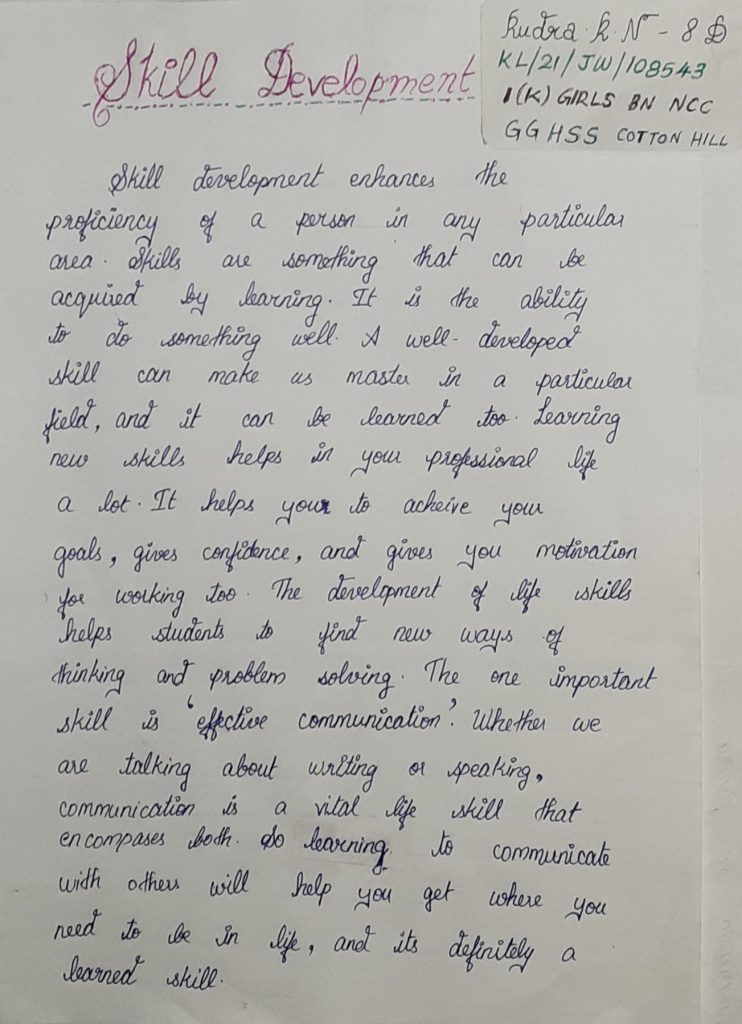 Rudra. R. N - 8 D
KL/21/JW/108543
1(K) GIRLS BN NCC
GGHSS COTTON HILL
Skill Development
Skill development enhances the
proficiency of a person in any particular
area. Skills are something that can be
acquired by learning. It is the ability
to do something well. A well-developed
skill can make us master in a particular
field, and it can be learned too. Learning
new skills helps in your professional life
a lot. It helps your to acheive your
goals, gives confidence, and gives you motivation
for working too. The development of life skills
helps students to find new ways of
thinking and problem solving. The one important
skill is 'effective communication'. Whether we
are talking about writing or speaking,
communication is a vital life skill that
encompases both. So learning to communicate
with others will help you get where you
need to be in life, and its definitely a
learned skill.